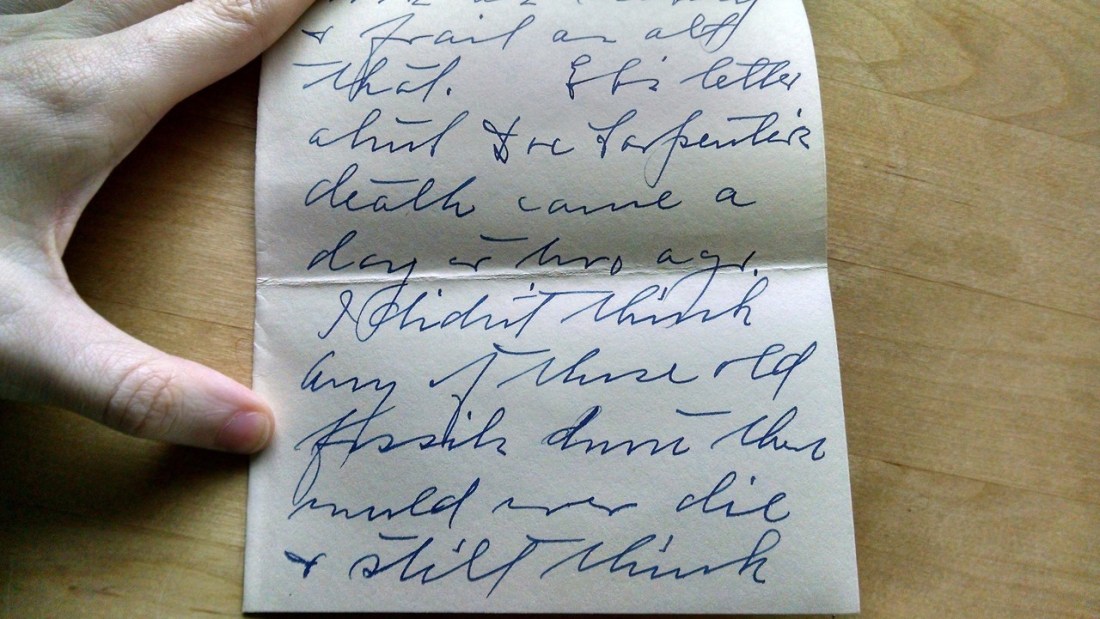 & frail an all
that. Eb's letter
about Doc Carpenter's
death came a
day or two ago.
I didn't think
any of those old
fossils down there
would ever die
& still think